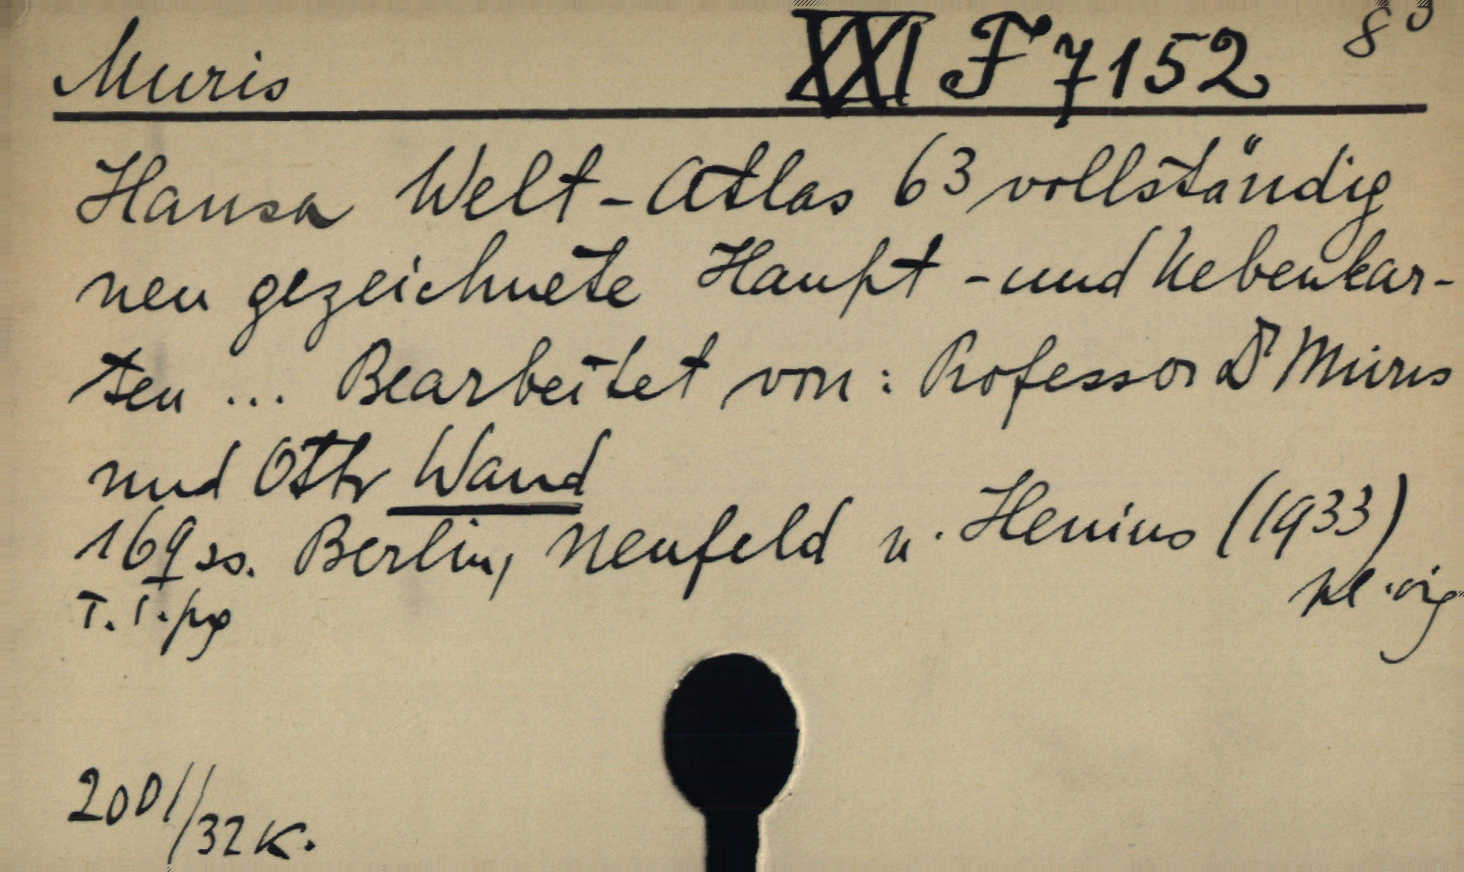 Muris XXI F 7152 8°
Hansa Welt-Atlas 63 vollständig
neu gezeichnete Haupt-und Nebenkar-
ten ... Bearbeitet von: Professor Dr Muris
und Otto Wand
169 ss. Berlin, Neufeld u. Henius (1933)
T. T. pg
2001/32 K.